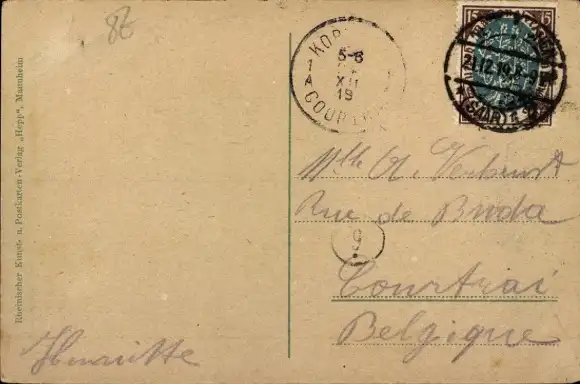 8E
Rheinischer Kunst- u. Postkarten-Verlag „Hepp", Mannheim
KOR
5-6
XII
19
1A
COURTRAI
15
15
(SAAR)
Mlle A. Verbeurst
Rue de Buda
5
Courtrai
Belgique
Henriette